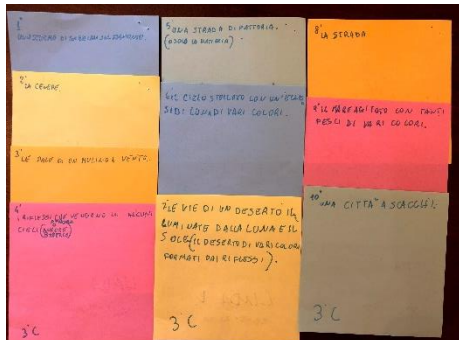 1°
SUL PAVIMENTO.
2° LA CENERE.
3° LE PALE DI UN MULINO A VENTO.
4°
I RIFLESSI CHE VENGONO IN ALCUNI
CIELI
3°C
5° UNA STRADA DI MATTONI.
6° IL CIELO STELLATO CON
LUNA DI VARI COLORI.
7° LE VIE DI UN DESERTO ILL
UMINATE DALLA LUNA E IL
SOLE (IL DESERTO DI VARI COLORI
FORMATI DAI RIFLESSI).
3°C
8° LA STRADA
9° IL MARE AGITATO CON TANTI
PESCI DI VARI COLORI.
10° UNA CITTÀ A SCACCHI.
3°C